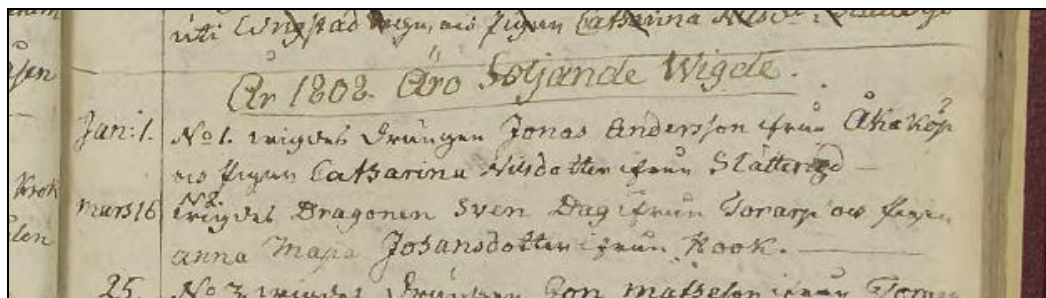 uti Ving stad och Pigan Catharina Nilsdr i
År 1808 Äro Följande Wigde.
Jan: 1. No 1. wigdes Drängen Jonas Andersson ifrån Åkaköp
och Pigan Catharina Nilsdotter ifrån Slätteryd
Mars 16 No 2. wigdes Dragonen Sven Dag ifrån Torarp och Pigan
Anna Maja Johansdotter ifrån Kook.
25. No 3. wigdes Drängen Jon Matheson ifrån